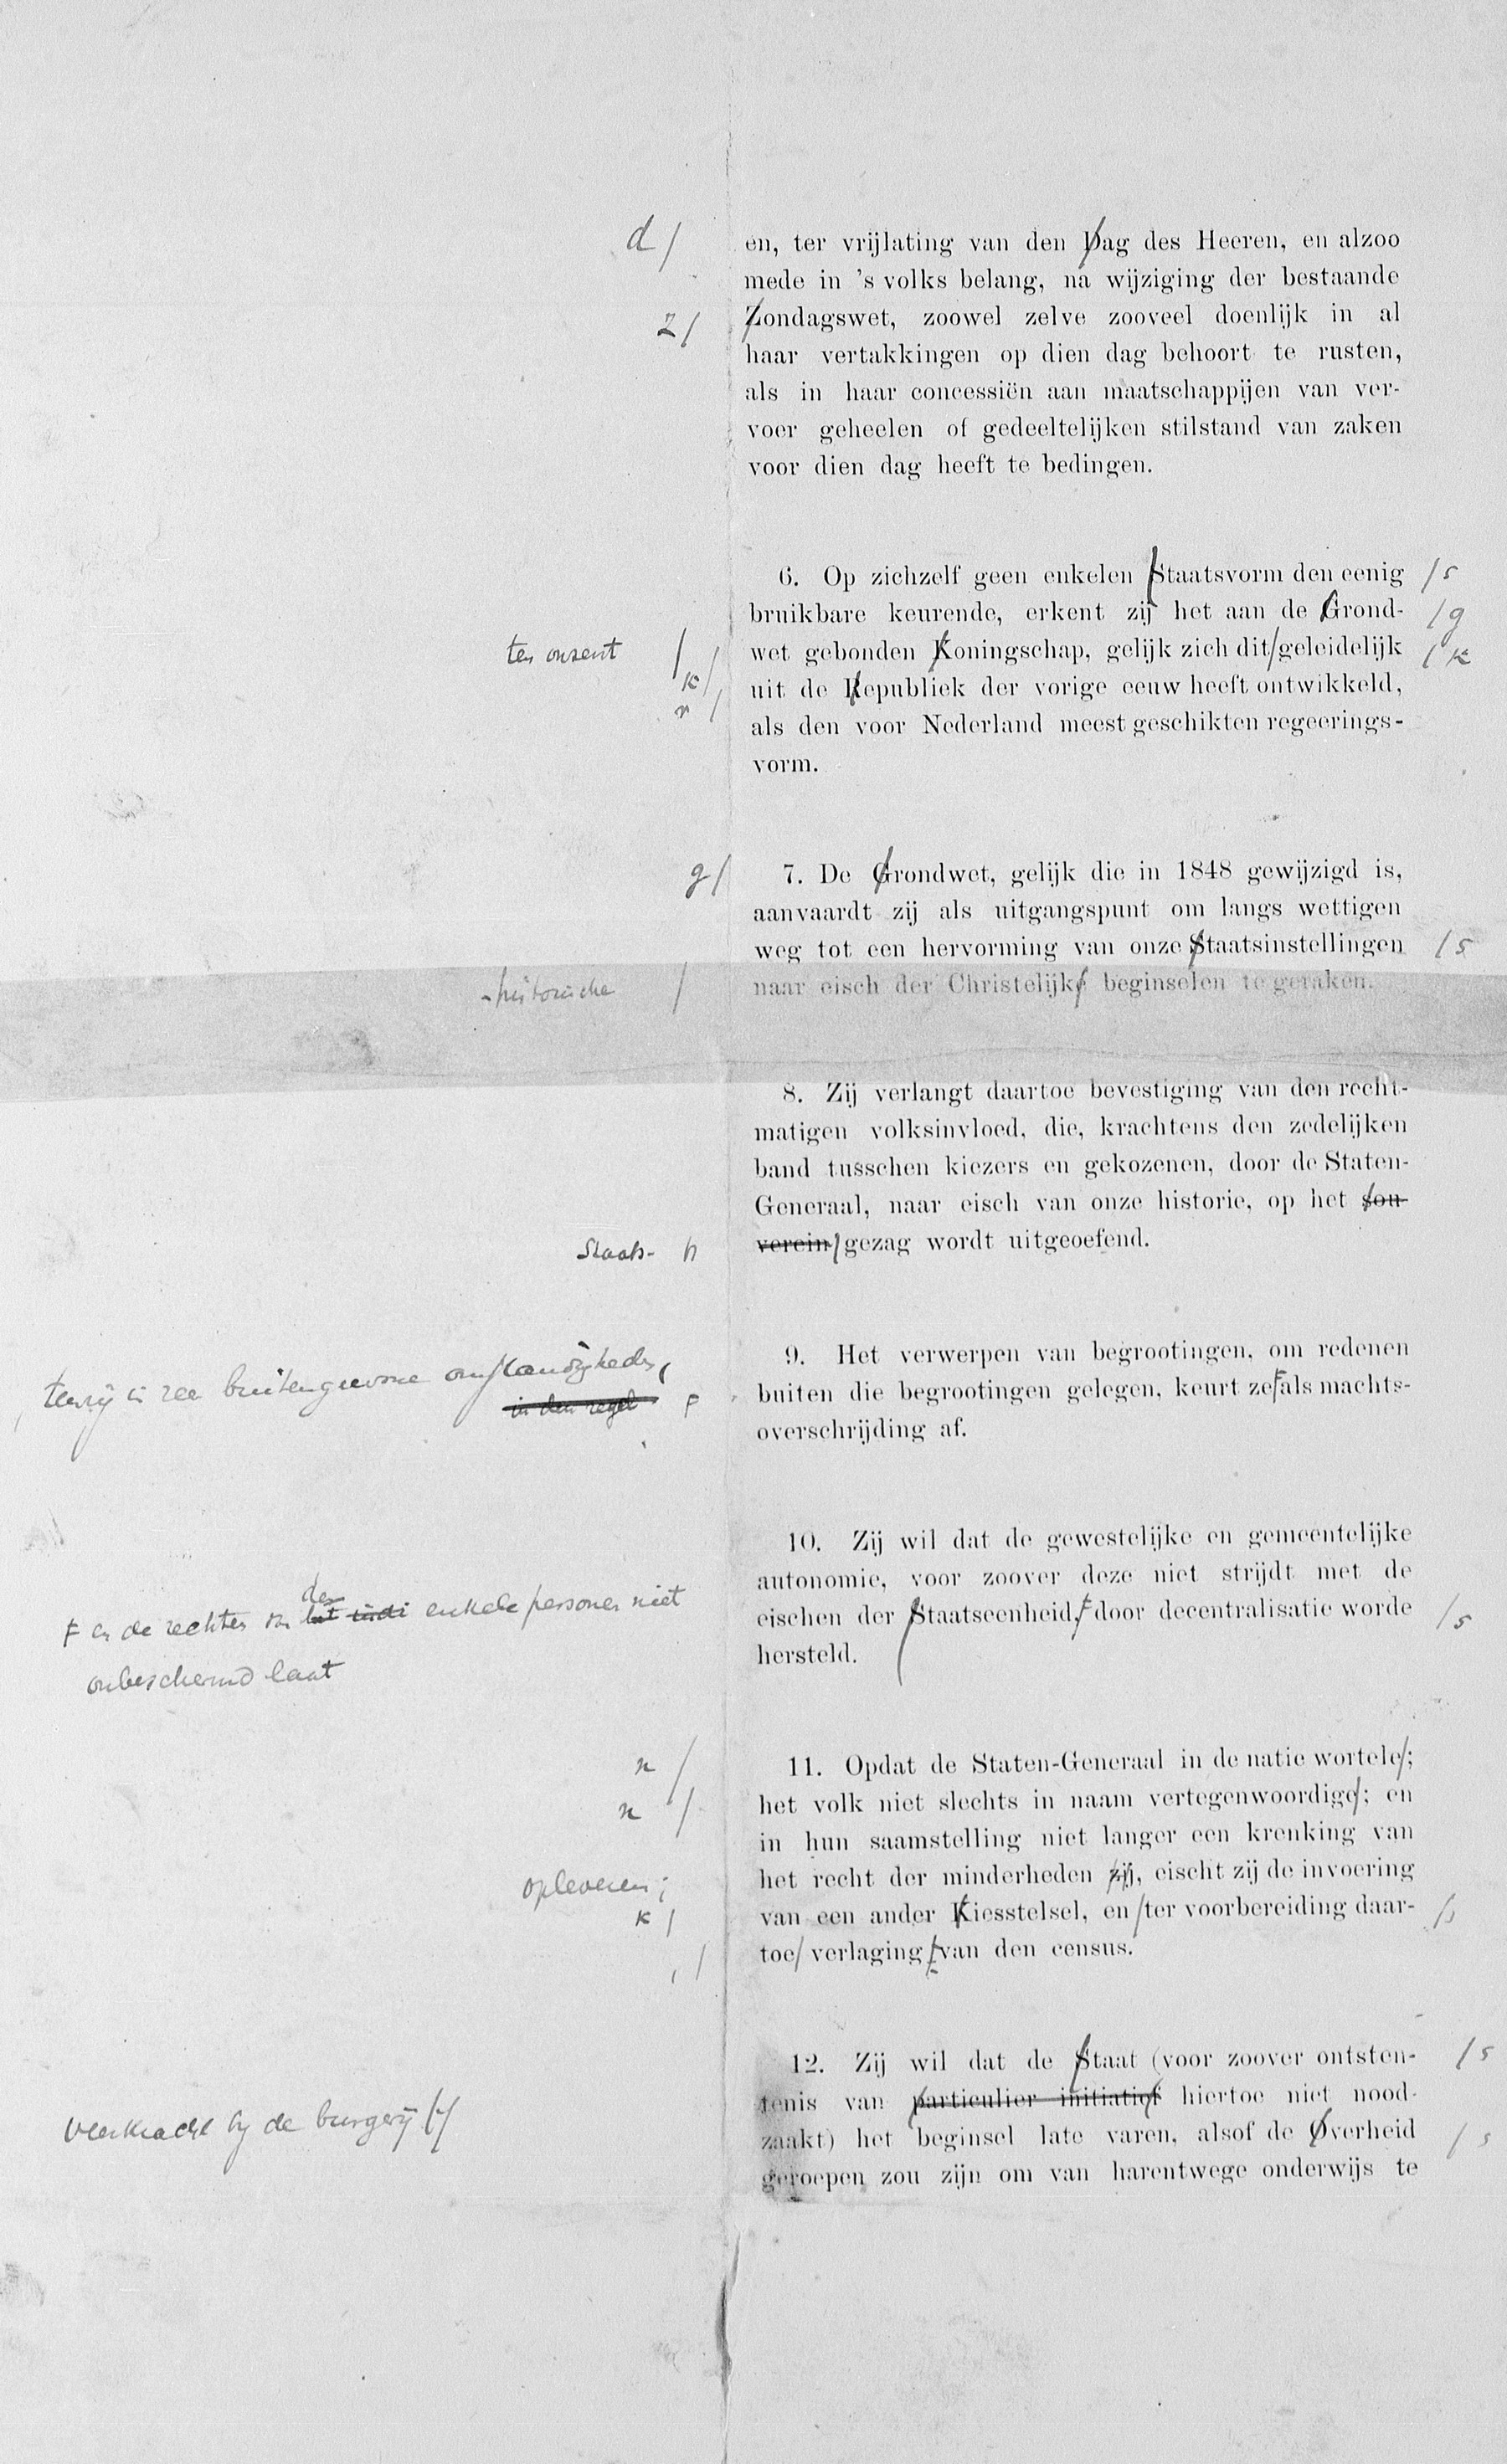 d/
en, ter vrijlating van den Dag des Heeren, en alzoo
mede in 's volks belang, na wijziging der bestaande
z/
Zondagswet, zoowel zelve zooveel doenlijk in al
haar vertakkingen op dien dag behoort te rusten,
als in haar concessiën aan maatschappijen van ver-
voer geheelen of gedeeltelijken stilstand van zaken
voor dien dag heeft te bedingen.
6. Op zichzelf geen enkelen Staatsvorm den eenig /s
bruikbare keurende, erkent zij het aan de Grond- /g
ten onzent /
wet gebonden Koningschap, gelijk zich dit/geleidelijk /k
k/
uit de Republiek der vorige eeuw heeft ontwikkeld,
r/
als den voor Nederland meest geschikten regeerings-
vorm.
g/
7. De Grondwet, gelijk die in 1848 gewijzigd is,
aanvaardt zij als uitgangspunt om langs wettigen
weg tot een hervorming van onze Staatsinstellingen /s
-historische /
naar eisch der Christelijke beginselen te geraken.
8. Zij verlangt daartoe bevestiging van den recht-
matigen volksinvloed, die, krachtens den zedelijken
band tusschen kiezers en gekozenen, door de Staten-
Generaal, naar eisch van onze historie, op het sou-
Staats-
verein/gezag wordt uitgeoefend.
9. Het verwerpen van begrootingen, om redenen
tenzij in zeer buitengewone omstandigheden,
in den regel F
buiten die begrootingen gelegen, keurt ze F als machts-
overschrijding af.
10. Zij wil dat de gewestelijke en gemeentelijke
autonomie, voor zoover deze niet strijdt met de
F en de rechten van het indi den enkele personen niet
onbeschermd laat
eischen der Staatseenheid, F door decentralisatie worde /s
hersteld.
n /
11. Opdat de Staten-Generaal in de natie wortele/;
n /
het volk niet slechts in naam vertegenwoordige/; en
in hun saamstelling niet langer een krenking van
opleveren;
het recht der minderheden zij, eischt zij de invoering
k /
van een ander Kiesstelsel, en/ter voorbereiding daar- /,
, /
toe/ verlaging van den census.
12. Zij wil dat de Staat (voor zoover ontsten- /s
veerkracht bij de burgerij
tenis van particulier initiatief hiertoe niet nood-
zaakt) het beginsel late varen, alsof de Overheid
geroepen zou zijn om van harentwege onderwijs te